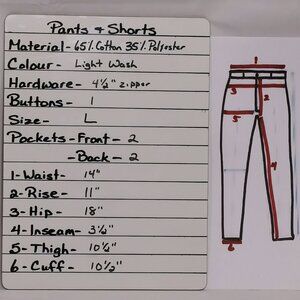 Pants & Shorts
Material - 65% Cotton 35% Polyester
Colour - Light Wash
Hardware - 4½" zipper
Buttons - 1
Size - L
Pockets - Front - 2
- Back - 2
1 - Waist - 14"
2 - Rise - 11"
3 - Hip - 18"
4 - Inseam - 3½"
5 - Thigh - 10½"
6 - Cuff - 10½"
1
3
2
5
4
6